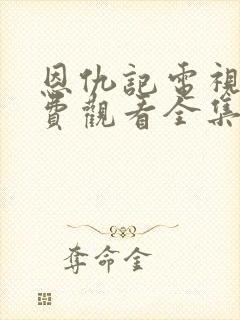 恩仇記電視
費觀看全集
奪命金